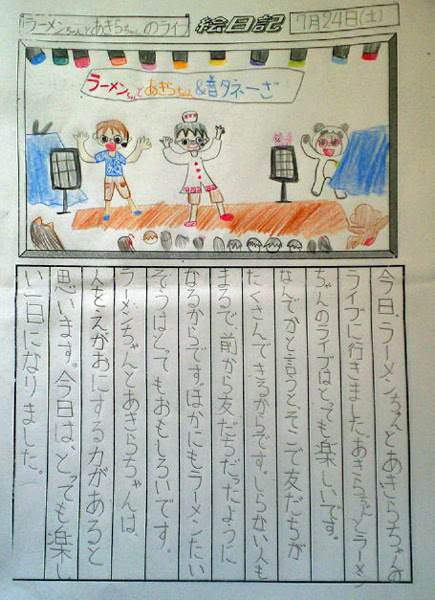 ラーメンちゃんとあきらちゃんのライブ
絵日記
7月24日(土)
ラーメンちゃんとあきらちゃん&音タネーざ
今日、ラーメンちゃんとあきらちゃんの
ライブに行きました。あきらちゃんとラーメン
ちゃんのライブはとても楽しいです。
なんでかと言うとそこで友だちが
たくさんできるからです。しらない人も
まるで、前から友だちだったように
なるからです。ほかにもラーメンたい
そうはとってもおもしろいです。
ラーメンちゃんとあきらちゃんは、
人をえがおにする力があると
思います。今日は、とっても楽し
い一日になりました。